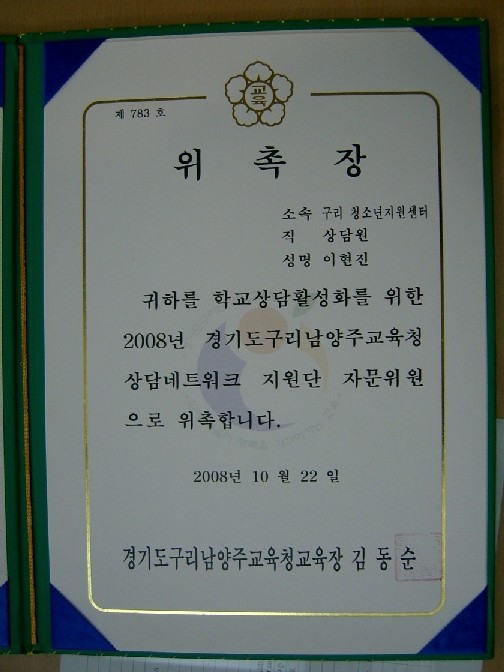 교육
제 783 호
위 촉 장
소속 구리 청소년지원센터
직 상담원
성명 이현진
귀하를 학교상담활성화를 위한
2008년 경기도구리남양주교육청
상담네트워크 지원단 자문위원
으로 위촉합니다.
2008년 10 월 22 일
경기도구리남양주교육청교육장 김 동 순